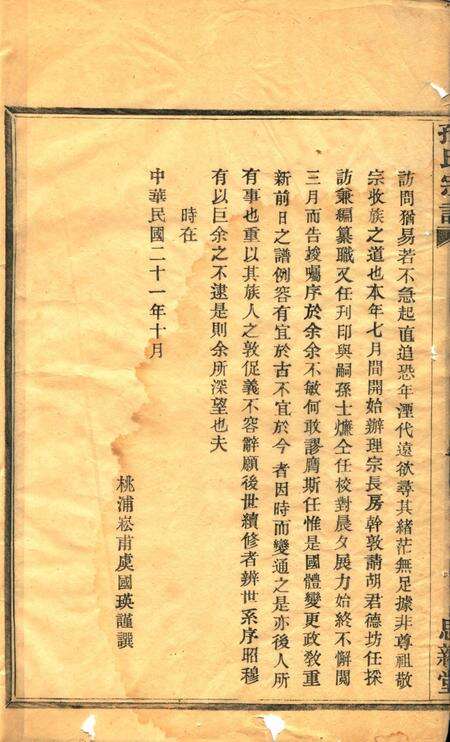 孫氏宗譜
思新堂
訪問猶易若不急起直追恐年湮代遠欲尋其緒茫無足據非尊祖敬
宗收族之道也本年七月間開始辦理宗長房幹敦請胡君德坊任採
訪兼編纂職又任刋印與嗣孫士爊仝任校對晨夕展力始終不懈閱
三月而告竣囑序於余余不敏何敢謬膺斯任惟是國體變更政敎重
新前日之譜例容有宜於古不宜於今者因時而變通之是亦後人所
有事也重以其族人之敦促義不容辭願後世續修者辨世系序昭穆
有以匡余之不逮是則余所深望也夫
時在
中華民國二十一年十月
桃浦崧甫虞國瑛謹譔